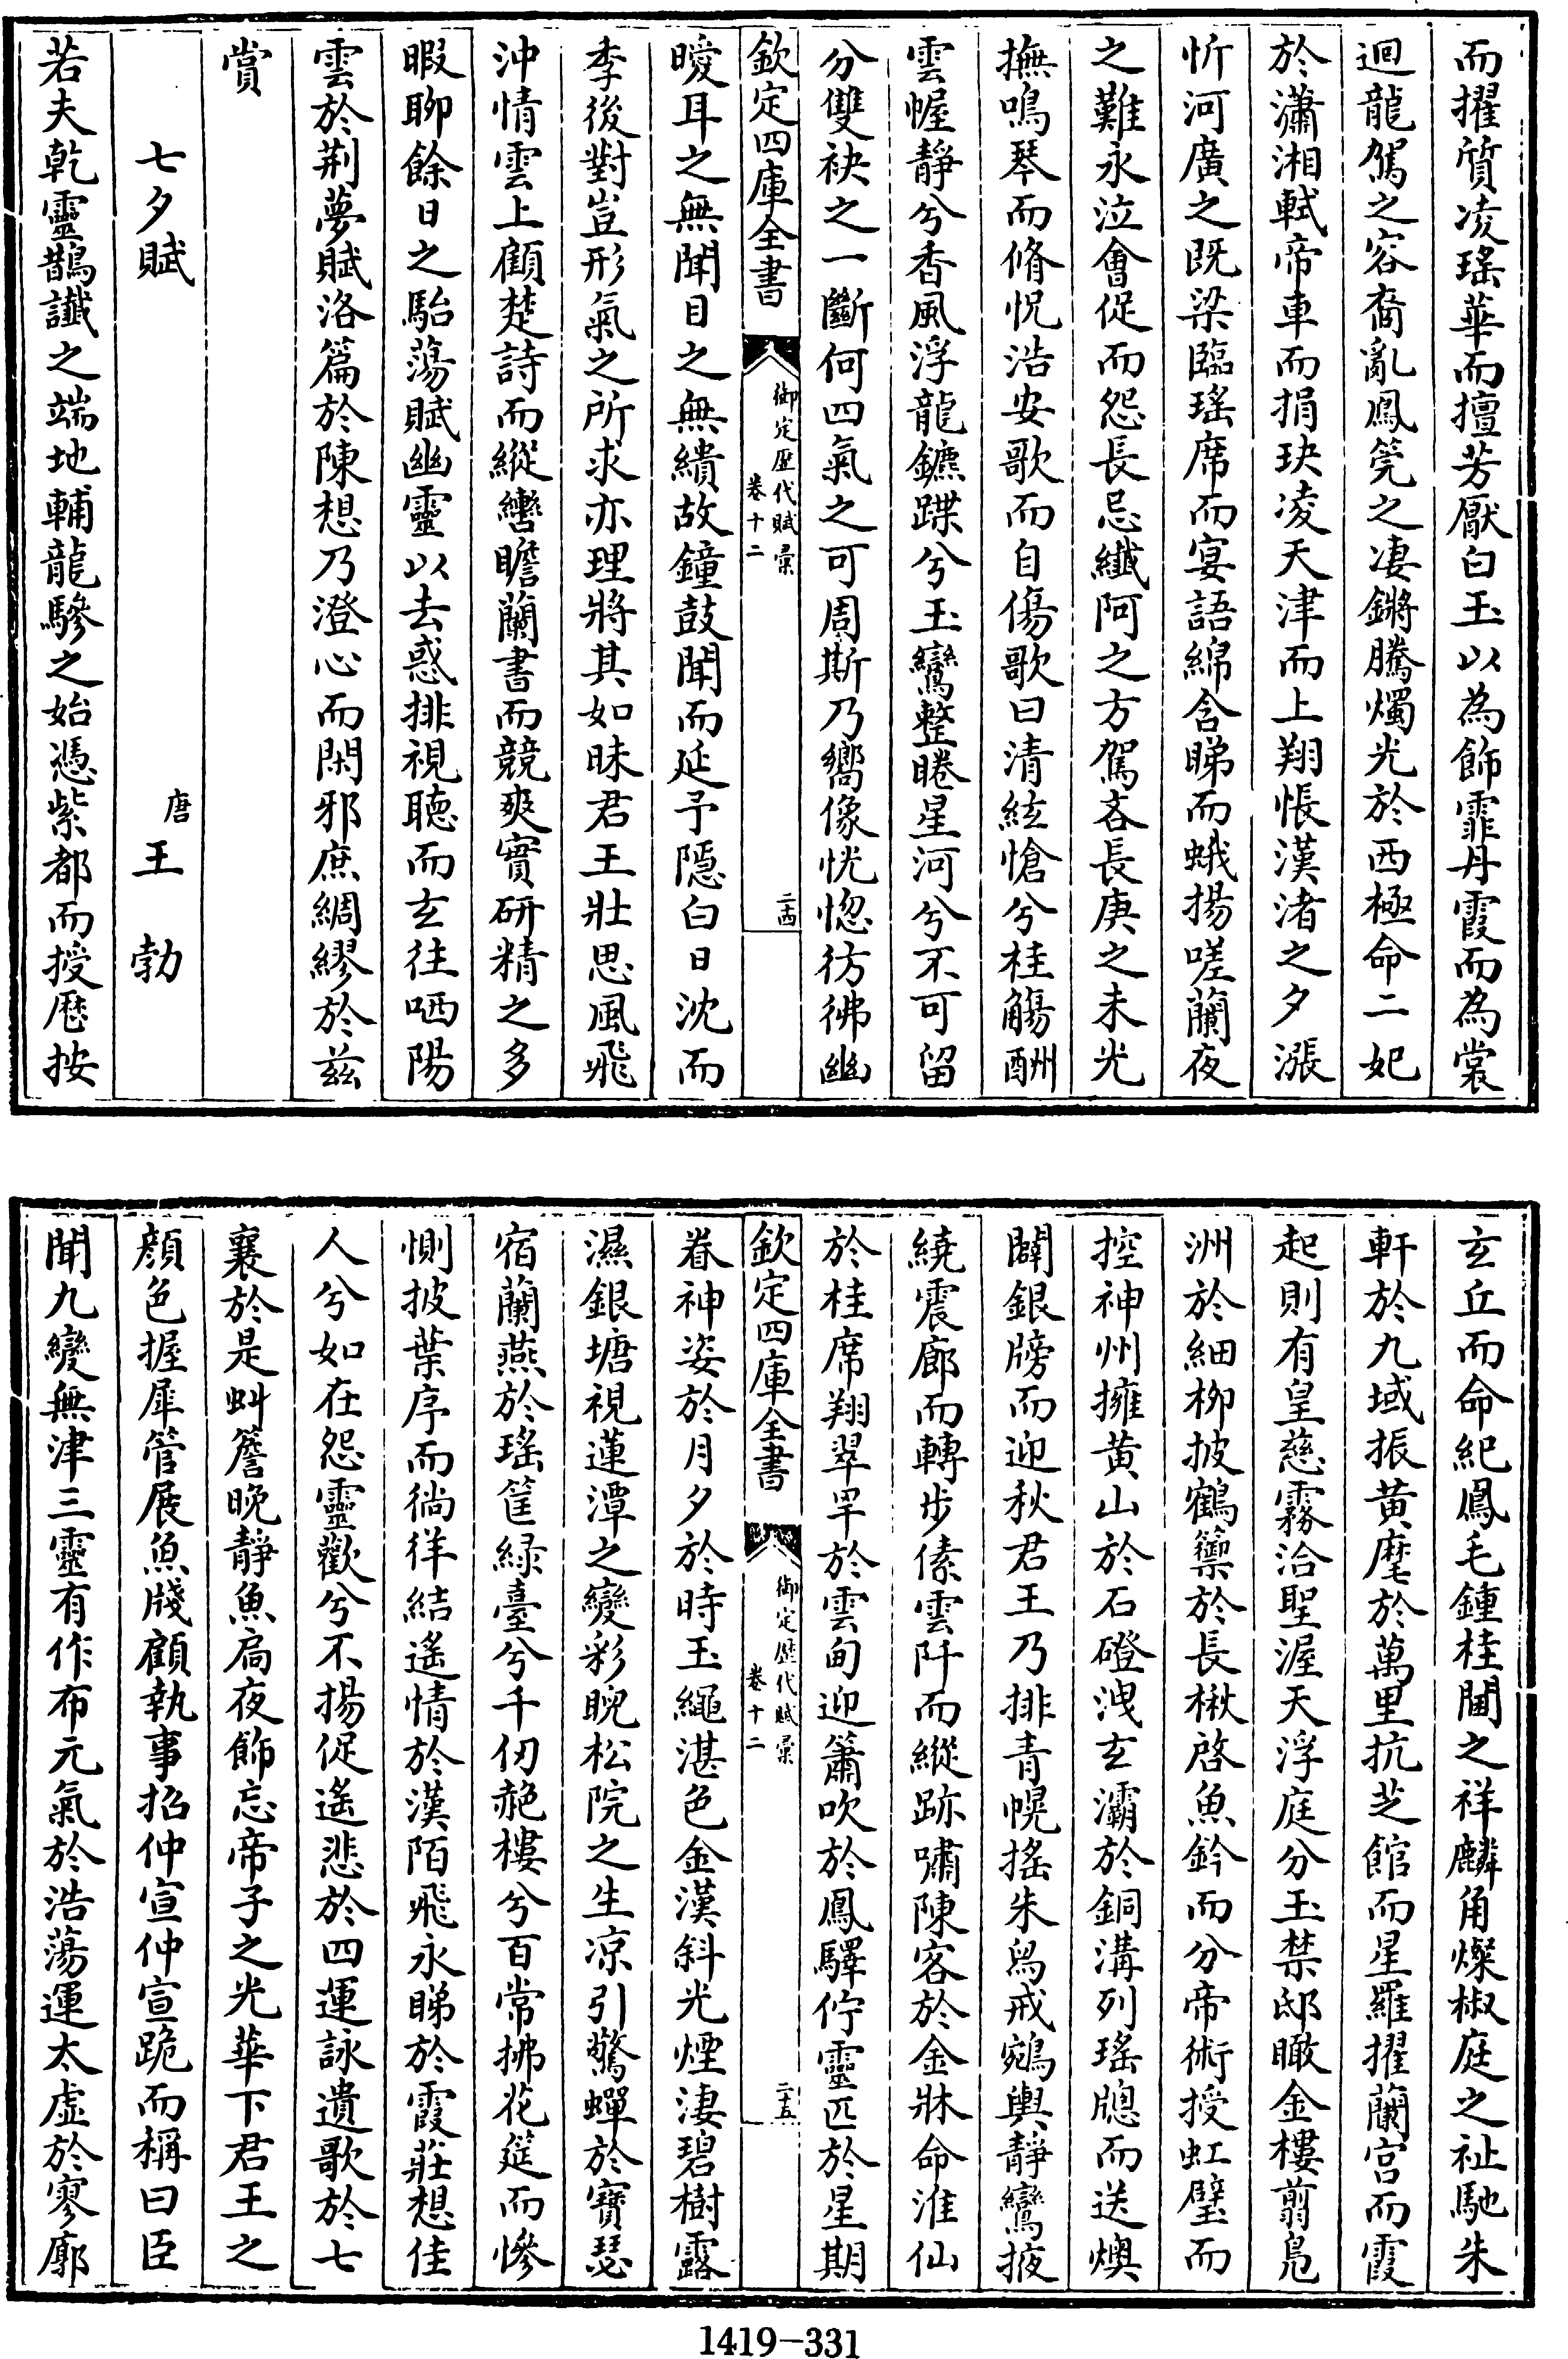 而擢質凌瑤華而擅芳厭白玉以為飾霏丹霞而為裳
迴龍駕之容裔亂鳳筦之淒鏘騰燭光於西極命二妃
於瀟湘軾帝車而捐玦凌天津而上翔悵漢渚之夕漲
忻河廣之既梁臨瑤席而宴語綿含睇而蛾揚嗟蘭夜
之難永泣會促而怨長忌纖阿之方駕吝長庚之未光
撫鳴琴而脩怳浩安歌而自傷歌曰清絃愴兮桂觴酬
雲幄靜兮香風浮龍鑣蹀兮玉鸞整睠星河兮不可留
分雙袂之一斷何四氣之可周斯乃嚮像恍惚彷彿幽
欽定四庫全書
御定歷代賦彙
卷十二
二十四
曖耳之無聞目之無績故鐘鼓聞而延予隱白日沈而
李後對豈形氣之所求亦理將其如昧君王壯思風飛
沖情雲上顧楚詩而縱轡瞻蘭書而競爽實研精之多
暇聊餘日之駘蕩賦幽靈以去惑排視聽而玄往哂陽
雲於荆夢賦洛篇於陳想乃澄心而閑邪庶綢繆於兹
賞
七夕賦
唐 王勃
若夫乾靈鵲讖之端地輔龍驂之始憑紫都而授歷按
玄丘而命紀鳳毛鍾桂閫之祥麟角燦椒庭之祉馳朱
軒於九域振黄麾於萬里抗芝館而星羅擢蘭宫而霞
起則有皇慈霧洽聖渥天浮庭分玉禁邸瞰金樓翦鳬
洲於細柳披鶴籞於長楸啓魚鈐而分帝術授虹璧而
控神州擁黄山於石磴洩玄灞於銅溝列瑤牕而送燠
闢銀牓而迎秋君王乃排青幌摇朱舄戒鵷輿靜鸞掖
繞震廊而轉步儵雲阡而縱跡嘯陳客於金牀命淮仙
於桂席翔翠罕於雲甸迎簫吹於鳳驛佇靈匹於星期
欽定四庫全書
御定歷代賦彙
卷十二
二十五
眷神姿於月夕於時玉繩湛色金漢斜光煙淒碧樹露
濕銀塘視蓮潭之變彩睨松院之生凉引驚蟬於寶瑟
宿蘭燕於瑤筐緑臺兮千仞赩樓兮百常拂花筵而慘
惻披葉序而徜徉結遙情於漢陌飛永睇於霞莊想佳
人兮如在怨靈歡兮不揚促遙悲於四運詠遺歌於七
襄於是虯簷晚靜魚扃夜飾忘帝子之光華下君王之
顔色握犀管展魚牋顧執事招仲宣仲宣跪而稱曰臣
聞九變無津三靈有作布元氣於浩蕩運太虚於寥廓
1419-331